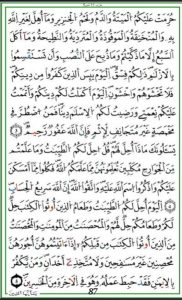 حُرِّمَتْ عَلَيْكُمُ الْمَيْتَةُ وَالدَّمُ وَلَحْمُ الْخِنزِيرِ وَمَا أُهِلَّ لِغَيْرِ اللَّهِ
بِهِ وَالْمُنْخَنِقَةُ وَالْمَوْقُوذَةُ وَالْمُتَرَدِّيَةُ وَالنَّطِيحَةُ وَمَا أَكَلَ
السَّبُعُ إِلَّا مَا ذَكَّيْتُمْ وَمَا ذُبِحَ عَلَى النُّصُبِ وَأَن تَسْتَقْسِمُوا
بِالْأَزْلَٰمِ ذَٰلِكُمْ فِسْقٌ الْيَوْمَ يَئِسَ الَّذِينَ كَفَرُوا مِن دِينِكُمْ
فَلَا تَخْشَوْهُمْ وَاخْشَوْنِ الْيَوْمَ أَكْمَلْتُ لَكُمْ دِينَكُمْ وَأَتْمَمْتُ
عَلَيْكُمْ نِعْمَتِي وَرَضِيتُ لَكُمُ الْإِسْلَٰمَ دِينًا فَمَنِ اضْطُرَّ فِي
مَخْمَصَةٍ غَيْرَ مُتَجَانِفٍ لِّإِثْمٍ فَإِنَّ اللَّهَ غَفُورٌ رَّحِيمٌ
يَسْـَٔلُونَكَ مَاذَا أُحِلَّ لَهُمْ قُلْ أُحِلَّ لَكُمُ الطَّيِّبَٰتُ وَمَا عَلَّمْتُم
مِّنَ الْجَوَارِحِ مُكَلِّبِينَ تُعَلِّمُونَهُنَّ مِمَّا عَلَّمَكُمُ اللَّهُ فَكُلُوا مِمَّا أَمْسَكْنَ
عَلَيْكُمْ وَاذْكُرُوا اسْمَ اللَّهِ عَلَيْهِ وَاتَّقُوا اللَّهَ إِنَّ اللَّهَ سَرِيعُ الْحِسَابِ
الْيَوْمَ أُحِلَّ لَكُمُ الطَّيِّبَٰتُ وَطَعَامُ الَّذِينَ أُوتُوا الْكِتَٰبَ حِلٌّ
لَّكُمْ وَطَعَامُكُمْ حِلٌّ لَّهُمْ وَالْمُحْصَنَٰتُ مِنَ الْمُؤْمِنَٰتِ وَالْمُحْصَنَٰتُ
مِنَ الَّذِينَ أُوتُوا الْكِتَٰبَ مِن قَبْلِكُمْ إِذَا ءَاتَيْتُمُوهُنَّ أُجُورَهُنَّ
مُحْصِنِينَ غَيْرَ مُسَٰفِحِينَ وَلَا مُتَّخِذِي أَخْدَانٍ وَمَن يَكْفُرْ
بِالْإِيمَٰنِ فَقَدْ حَبِطَ عَمَلُهُ وَهُوَ فِي الْءَاخِرَةِ مِنَ الْخَٰسِرِينَ
87